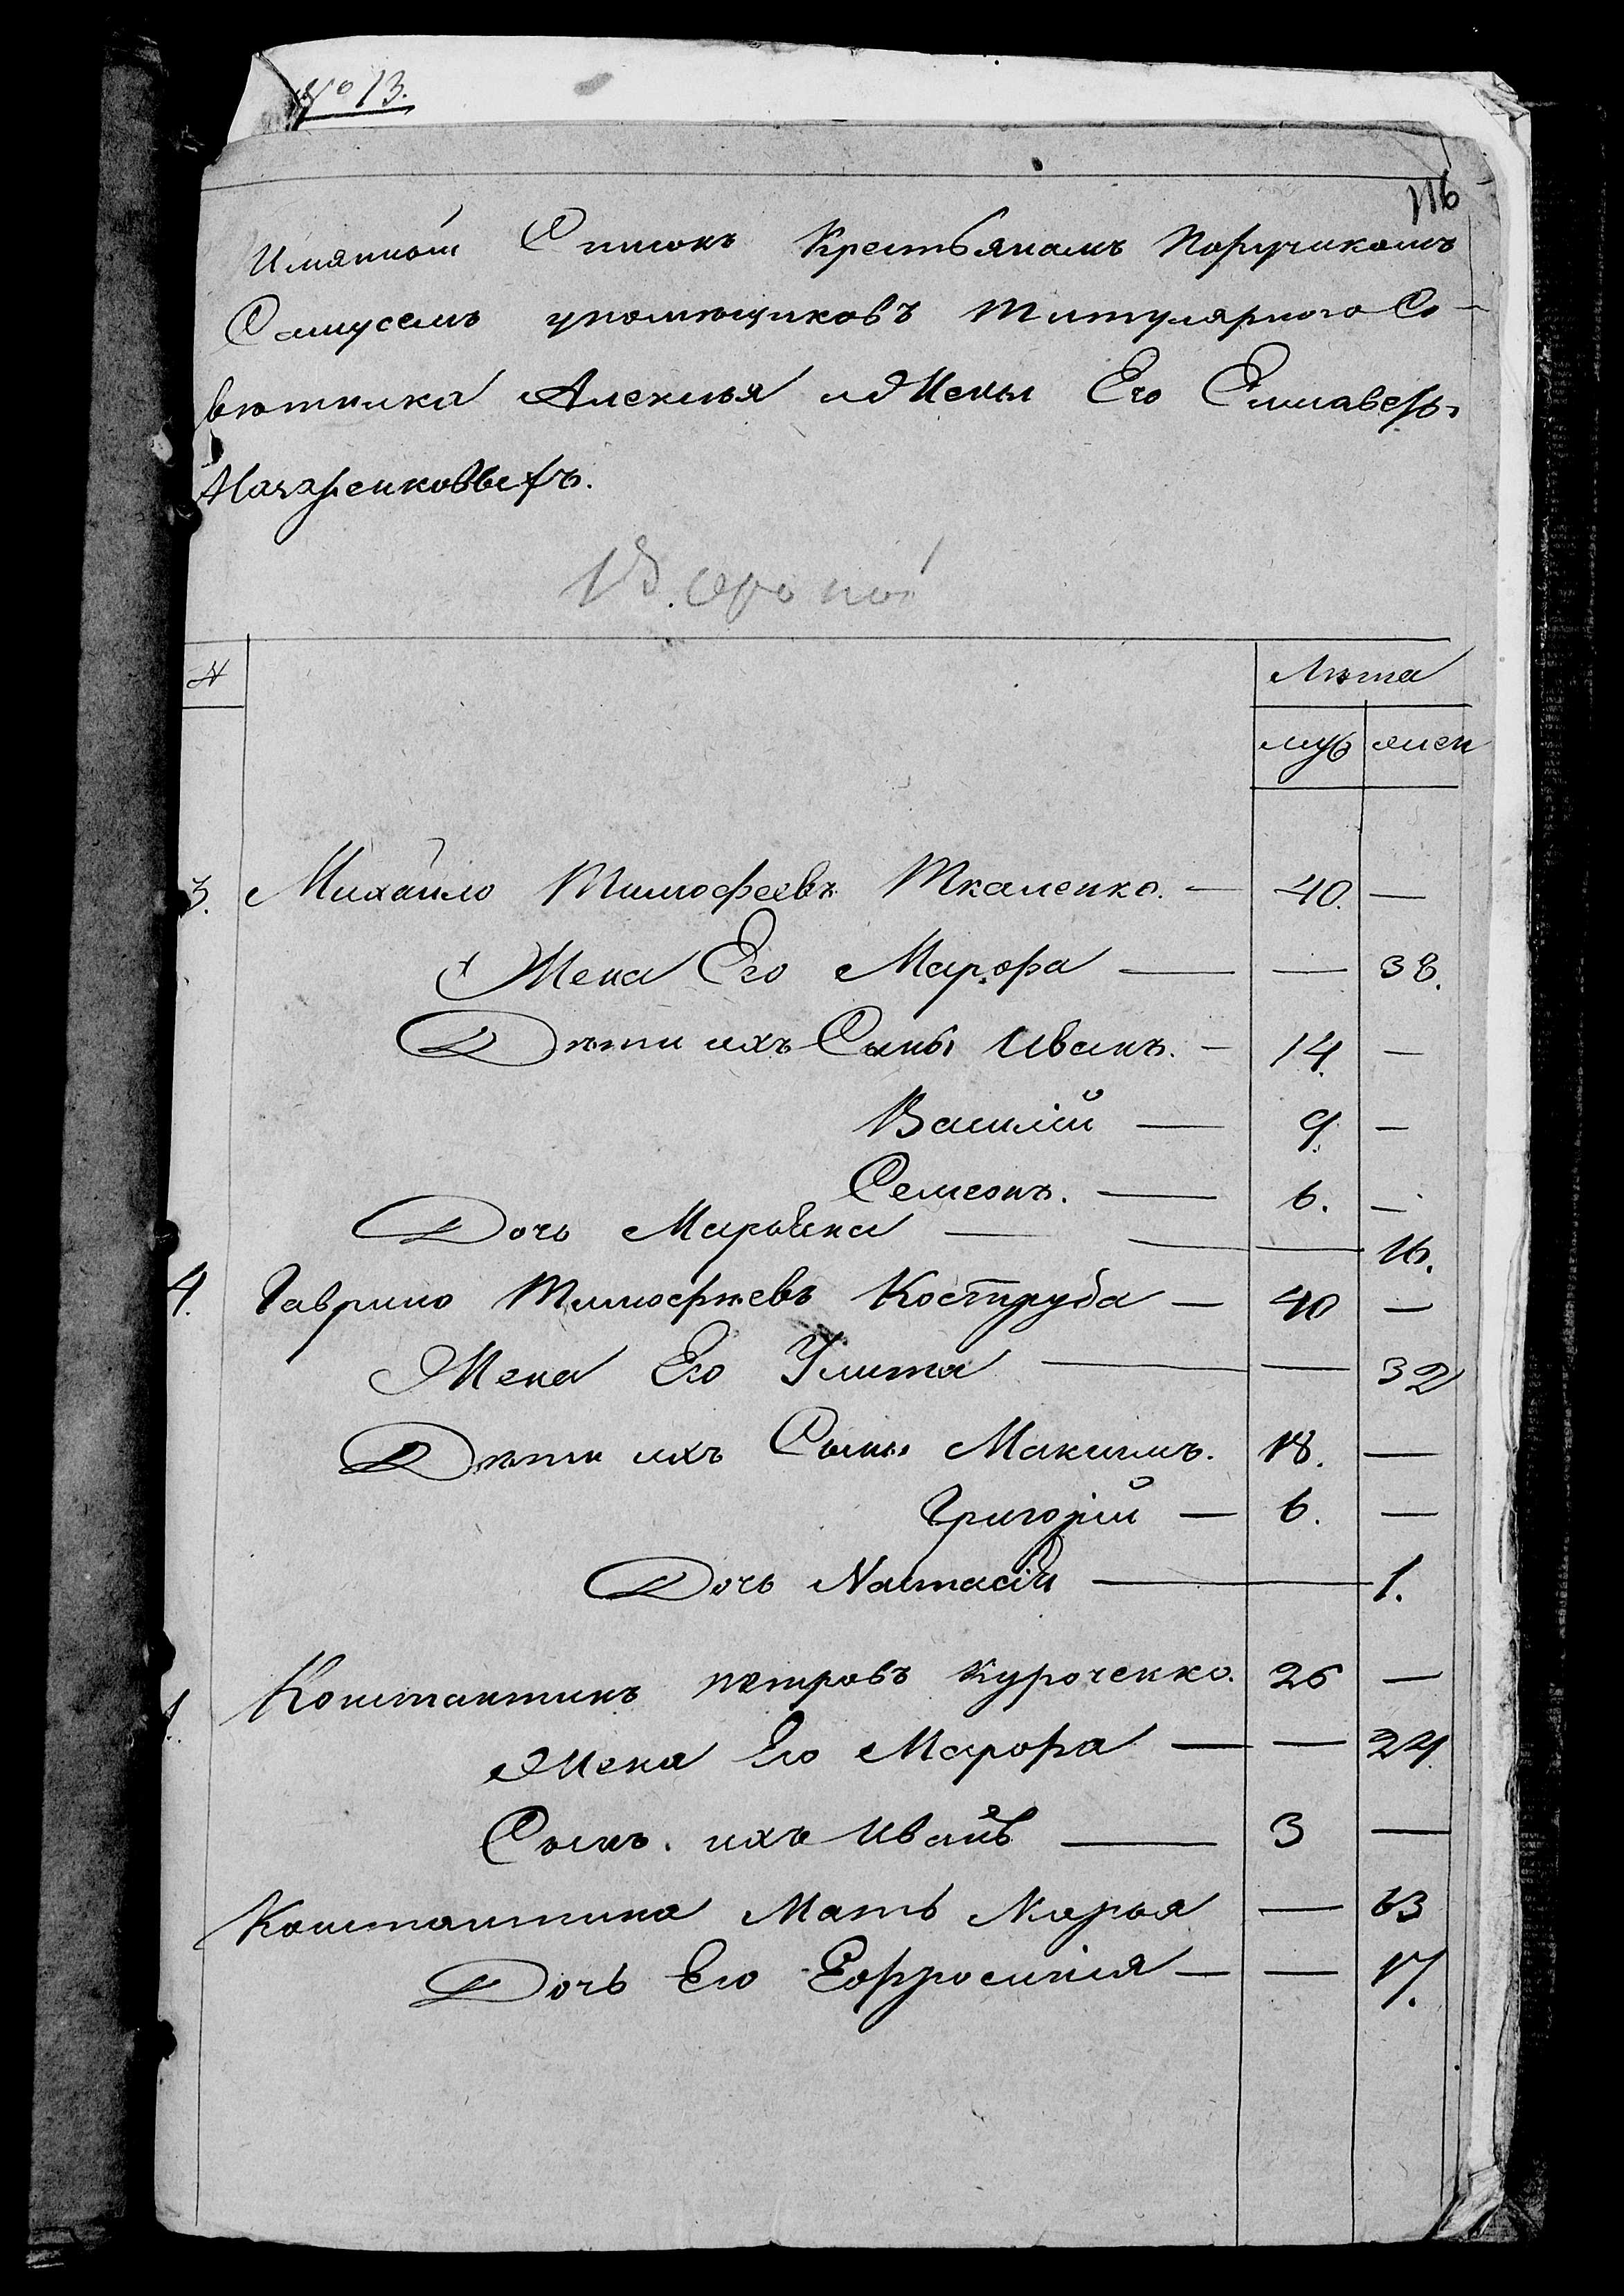 № 13.
116
Имянной Списокъ Крестьянамъ Поручикомъ
Самусемъ упомещиковъ титулярного Со-
вѣтника Алексѣя и Жены Его Елисаветъ
Назаренковыхъ.
N
Лѣта
муж жен
3. Михайло Тимофеевъ Ткаленко. — 40. —
Жена Его Марфа — — 38.
Дѣти ихъ Сыны Иванъ. — 14. —
Василій — 9. —
Семеонъ. — 6. —
Дочь Марьяна — — 16.
4. Гаврило Тимофѣевъ Коструба — 40 —
Жена Его Улита — — 32
Дѣти ихъ Сыны Максимъ. 18. —
Григорій — 6. —
Дочь Настасія — 1.
Константинъ петровъ Курочекко. 26 —
Жена Его Марфа — — 24.
Сынъ. ихъ Иванъ — 3 —
Константина Мать Марья — 63
Дочь Его Ефросинія — — 17.